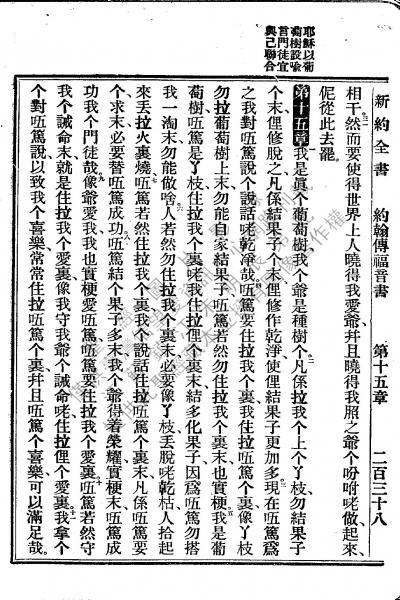 耶穌以葡
萄樹設喩
言門徒宜
與己聯合
新約全書　約翰傳福音書　第十五章　二百三十八
相干、然而要使得世界上人曉得我愛爺、幷且曉得我照之爺个吩咐咾做、起來、
伲從此去罷、
第十五章 我是眞个葡萄樹、我个爺是種樹个、凡係拉我个上个丫枝、勿結果子
个末、俚修脫之、凡係結果子个末、俚修作乾淨、使俚結果子更加多、現在㕶篤爲
之我對㕶篤說个說話咾乾淨哉、㕶篤要住拉我个裏、我住拉㕶篤个裏、像丫枝
勿拉葡萄樹上末、勿能自家結果子、㕶篤若然勿住拉我个裏末、也實梗、我是葡
萄樹、㕶篤是丫枝、住拉我个裏咾、我住拉俚个裏末、結多化果子、因爲㕶篤勿搭
我一淘末、勿能做啥、人若然勿住拉我个裏末、必要像丫枝丟脫咾乾枯、人拾起
來丟拉火裏燒、㕶篤若然住拉我个裏、我个說話住拉㕶篤个裏末、凡係㕶篤要
个、求末必要替㕶篤成功、㕶篤結个果子多末、我个爺得着榮耀、實梗末㕶篤成
功我个門徒哉、像爺愛我、我也實梗愛㕶篤、㕶篤要住拉我个愛裏、㕶篤若然守
我个誡命末、就是住拉我个愛裏、像我守我爺个誡命咾、住拉俚个愛裏、我拿个
个對㕶篤說、以致我个喜樂常常住拉㕶篤个裏、幷且㕶篤个喜樂、可以滿足哉、